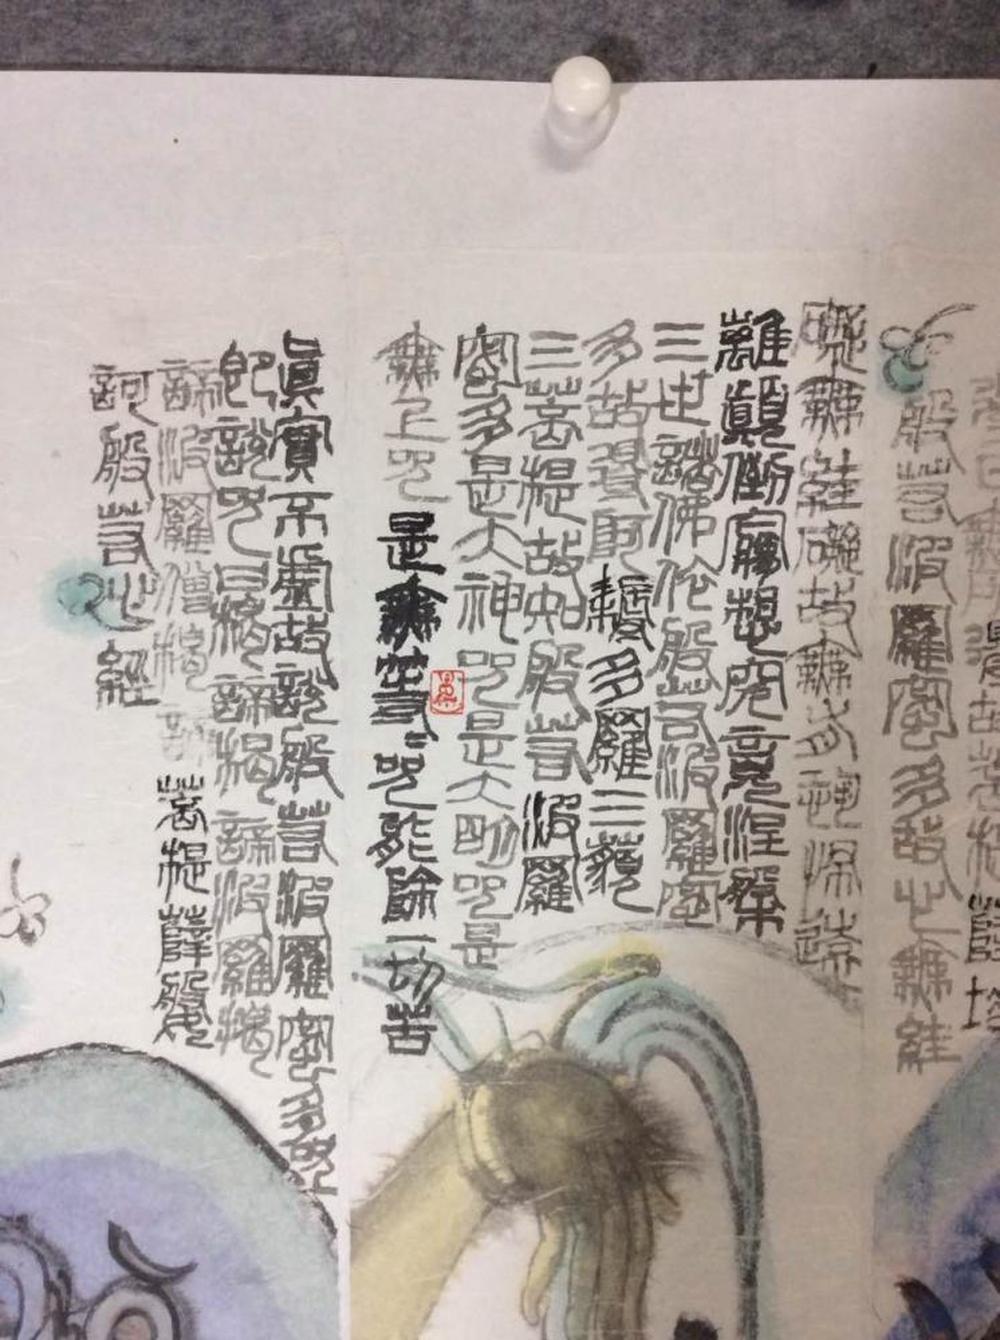 無所得故菩提薩埵
般若波羅蜜多故心無罣
礙無罣礙故無有恐怖遠
離顛倒夢想究竟涅槃
三世諸佛依般若波羅蜜
多故得阿耨多羅三藐
三菩提故知般若波羅
蜜多是大神咒是大明咒是
無上咒是無等〻咒能除一切苦
眞實不虛故說般若波羅蜜多咒
即說咒曰揭諦揭諦波羅揭
諦波羅僧揭諦菩提薩婆
訶般若心經